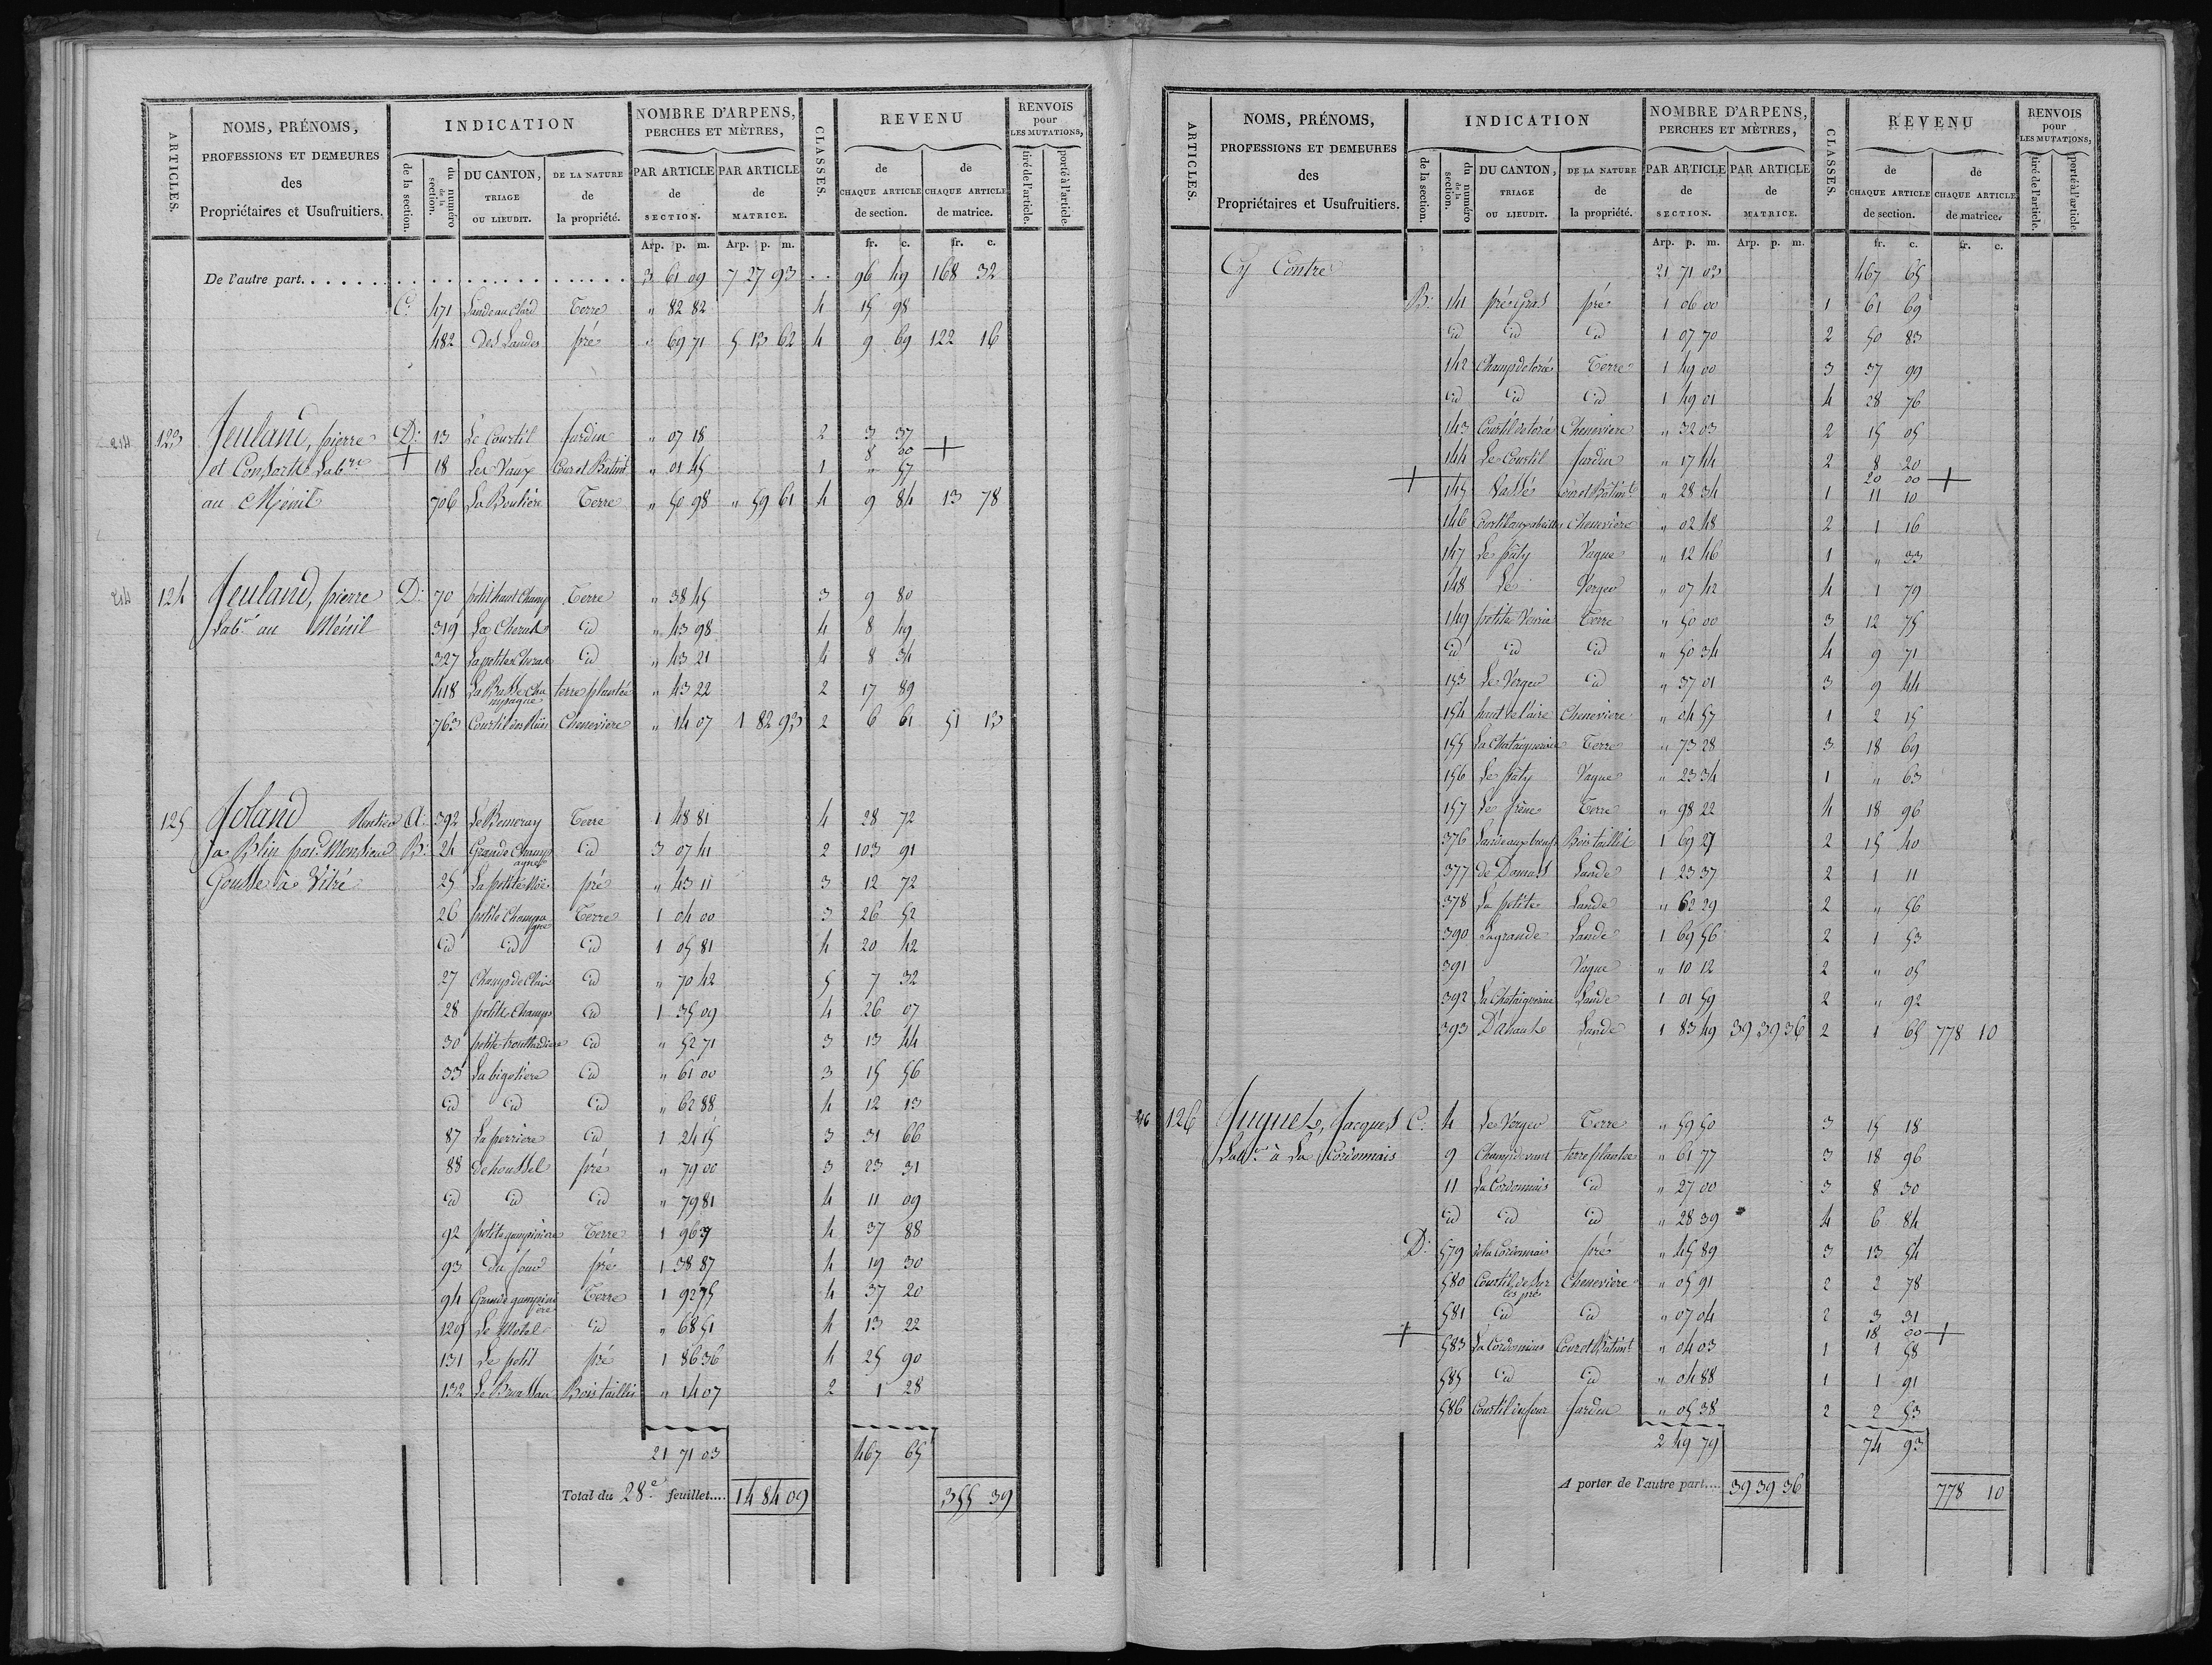 ARTICLES. | NOMS, PRÉNOMS, PROFESSIONS ET DEMEURES des Propriétaires et Usufruitiers. | INDICATION | NOMBRE D'ARPENS, PERCHES ET MÈTRES, | CLASSES. | REVENU | RENVOIS pour LES MUTATIONS,
de la section. | du numéro de la section. | DU CANTON, TRIAGE OU LIEUDIT. | DE LA NATURE de la propriété. | PAR ARTICLE de SECTION. | PAR ARTICLE de MATRICE. | de CHAQUE ARTICLE de section. | de CHAQUE ARTICLE de matrice. | tiré de l'article. | porté à l'article.
Arp. p. m. | Arp. p. m. | fr. c. | fr. c.
De l'autre part. 3 61 09 7 27 93 96 49 168 32
C. 471 Lande au Terre " 82 82 4 15 98
482 Des Landes pré " 69 71 5 13 62 4 9 69 122 16
214 123 Jeuland, pierre D. 13 Le Courtil Jardin " 07 18 2 3 37
8 00 +
et Consorts Lab.re + 18 Les Vaux Cour et Bâtim.t " 01 45 1 " 57
au Ménil 706 La Boutière Terre " 50 98 " 59 61 4 9 84 13 78
214 124 Jeuland, pierre D. 70 petit haut Champ Terre " 38 45 3 9 80
Lab.r au Ménil 319 La id " 43 98 4 8 49
327 La petite id " 43 21 4 8 34
418 La Basse Champagne terre plantée " 43 22 2 17 89
763 Courtil des Chenevière " 14 07 1 82 93 2 6 61 51 13
125 Joland Rentier A. 392 Le Bemeray Terre 1 48 81 4 28 72
a Blin par Monsieur B. 24 Grande Champagne id 3 07 41 2 103 91
Goudse à Vitré 25 La petite Noë pré " 43 11 3 12 72
26 petite Champagne Terre 1 04 00 3 26 52
id id id 1 05 81 4 20 42
27 Champ de id " 70 42 5 7 32
28 petite Champ id 1 35 09 4 26 07
30 petite id " 52 71 3 13 44
33 La bigotière id " 61 00 3 15 56
id id id " 62 88 4 12 13
87 La perrière id 1 24 15 3 31 66
88 de houssel pré " 79 00 3 23 31
id id id " 79 81 4 11 09
92 petite Terre 1 96 37 4 37 88
93 Du four pré 1 38 87 4 19 30
94 Grande Terre 1 92 75 4 37 20
129 Le Motel id " 68 51 4 13 22
131 Le petit pré 1 86 36 4 25 90
132 Le Bois taillis " 14 07 2 1 28
21 71 03 467 65
Total du 28.e feuillet.... 14 84 09 355 39
ARTICLES. | NOMS, PRÉNOMS, PROFESSIONS ET DEMEURES des Propriétaires et Usufruitiers. | INDICATION | NOMBRE D'ARPENS, PERCHES ET MÈTRES, | CLASSES. | REVENU | RENVOIS pour LES MUTATIONS,
de la section. | du numéro de la section. | DU CANTON, TRIAGE OU LIEUDIT. | DE LA NATURE de la propriété. | PAR ARTICLE de SECTION. | PAR ARTICLE de MATRICE. | de CHAQUE ARTICLE de section. | de CHAQUE ARTICLE de matrice. | tiré de l'article. | porté à l'article.
Arp. p. m. | Arp. p. m. | fr. c. | fr. c.
Cy Contre 21 71 03 467 65
B. 141 pré Gras pré 1 06 00 1 61 69
id id id 1 07 70 2 50 83
142 Champ de Terre 1 49 00 3 37 99
id id id 1 49 01 4 28 76
143 Courtil Chenevière " 32 03 2 15 05
144 Le Courtil Jardin " 17 44 2 8 20
20 00 +
+ 145 Vassé Cour et Bâtim.t " 28 34 1 11 10
146 Courtil aux abeilles Chenevière " 02 48 2 1 16
147 Le pâty Vague " 12 46 1 " 33
148 Le Verger " 07 42 4 1 79
149 petite Terre " 50 00 3 12 75
id id id " 50 34 4 9 71
153 Le Verger id " 37 01 3 9 44
154 haut de l'aire Chenevière " 04 57 1 2 15
155 La Chataigneraie Terre " 73 28 3 18 69
156 Le pâty Vague " 23 34 1 " 63
157 Le frêne Terre " 98 22 4 18 96
376 Lande aux boeufs Bois taillis 1 69 27 2 15 40
377 de Damas Lande 1 23 37 2 1 11
378 La petite Lande " 62 29 2 " 56
390 La grande Lande 1 69 56 2 1 53
391 Vague " 10 12 2 " 05
392 La Chataigneraie Lande 1 01 59 2 " 92
393 Lande 1 83 49 39 39 36 2 1 65 778 10
216 126 Huguet, Jacques C. 4 Le Verger Terre " 59 50 3 15 18
Lab.r à La Cordonnais 9 Champ devant terre plantée " 61 77 3 18 96
11 La Cordonnais id " 27 00 3 8 30
id id id " 28 39 4 6 84
D. 579 de la Cordonnais pré " 45 89 3 13 54
580 Courtil de sur les prés Chenevière " 05 91 2 2 78
581 id id " 07 04 2 3 31
18 00 +
+ 583 La Cordonnais Cour et Bâtim.t " 04 03 1 1 58
585 id id " 04 88 1 1 91
586 Courtil du four Jardin " 05 38 2 2 53
2 49 79 74 93
A porter de l'autre part.... 39 39 36 778 10